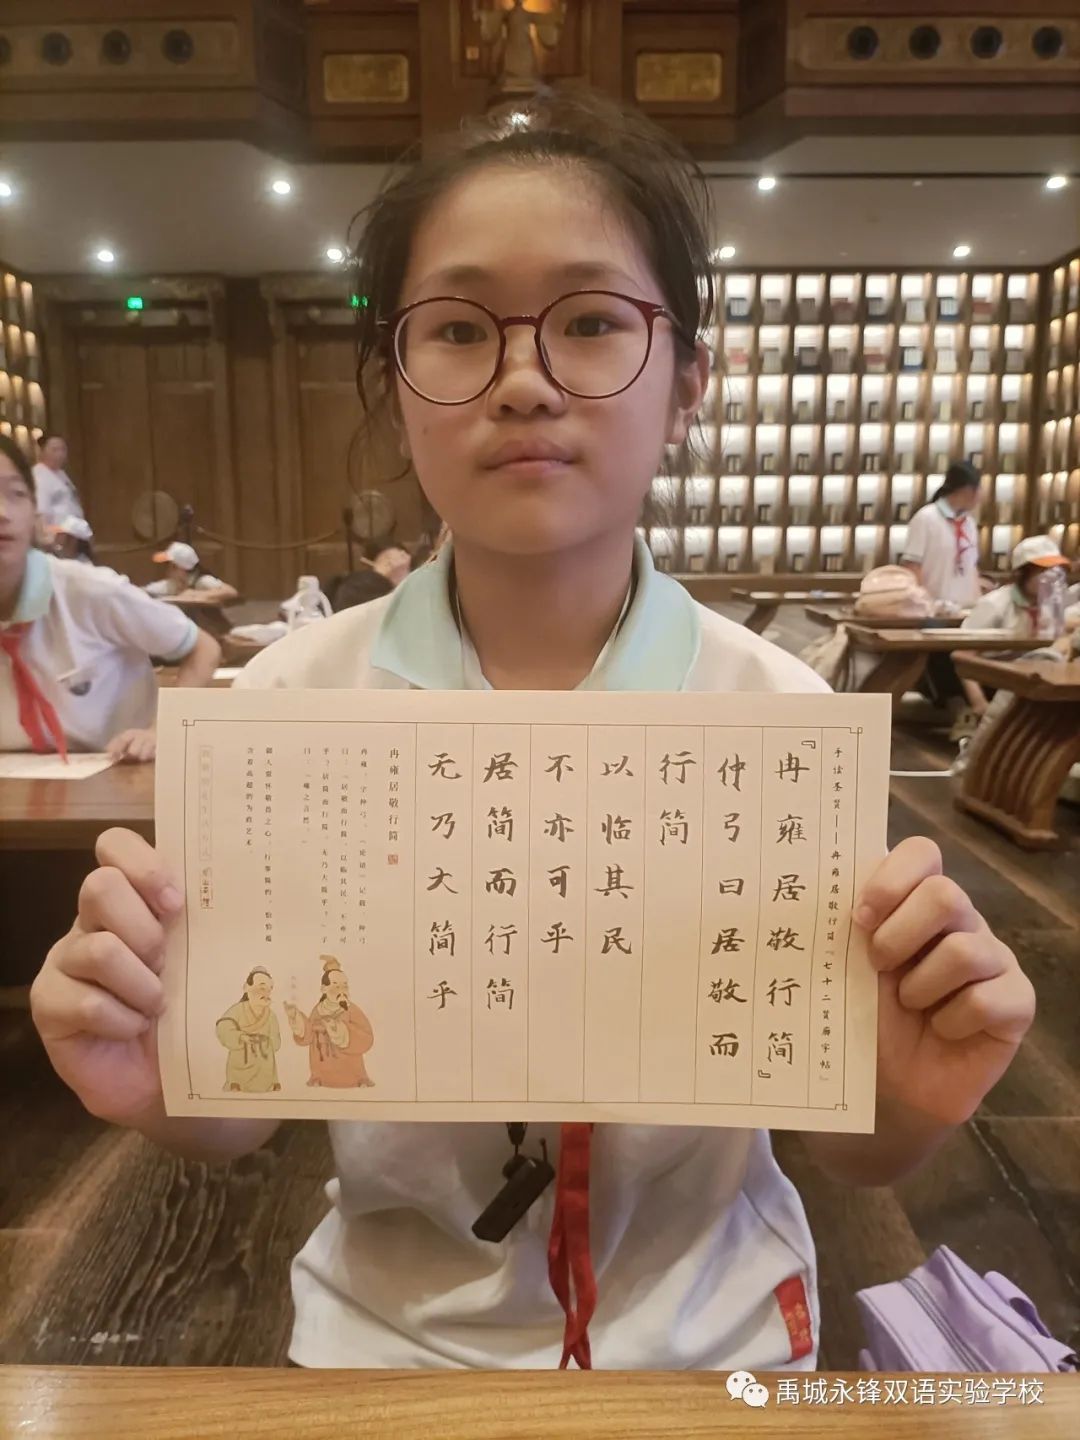 手读圣贤——冉雍居敬行简『七十二贤庙字帖』
『冉雍居敬行简』
仲弓曰居敬而
行简
以临其民
不亦可乎
居简而行简
无乃大简乎
冉雍居敬行简
冉雍，字仲弓。《论语》记载，仲弓
曰：“居敬而行简，以临其民，不亦可
乎？居简而行简，无乃大简乎？”子
曰：“雍之言然。”
含着高超的为政艺术。
禹城永锋双语实验学校